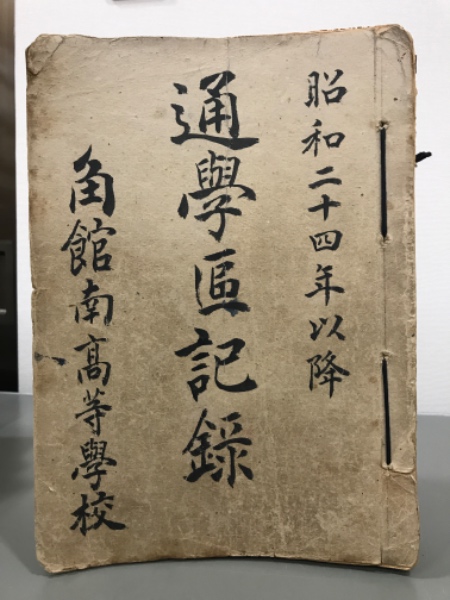 昭和二十四年以降
通學區記錄
角館南高等學校